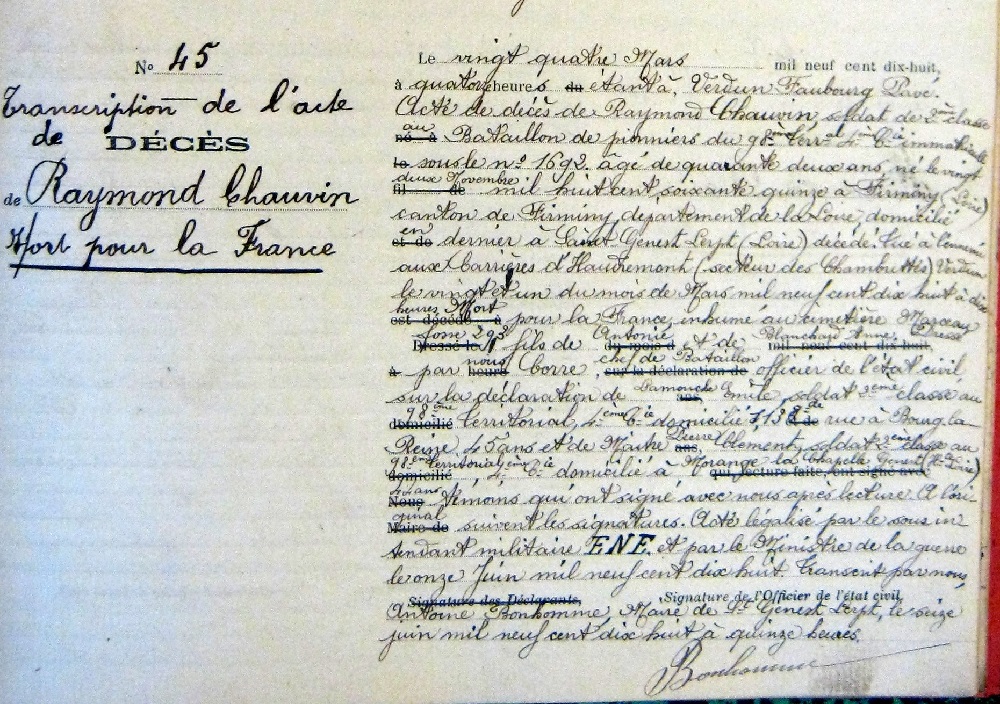 N° 45
Transcription de l'acte
de DÉCÈS
de Raymond Chauvin
Mort pour la France
Le vingt quatre Mars mil neuf cent dix-huit,
à quatorze heures du étant à, Verdun Faubourg Pavé.
Acte de décès de Raymond Chauvin, soldat de 2e classe
au
né à Bataillon de pionniers du 98ème Terral 4ème Cie immatriculé
le sous le n° 1692. âgé de quarante deux ans, né le vingt
deux Novembre
fil de mil huit cent soixante quinze à Firminy (Loire)
canton de Firminy, département de la Loire, domicilié
en
et de dernier à Saint Genest Lerpt (Loire) décédé tué à l'ennemi
aux Carrières d'Haudremont (secteur des Chambrettes) Verdun
le vingt et un du mois de Mars mil neuf cent dix huit à dix
heures Mort
est décédé à pour la France, inhumé au cimetière Marceau
fosse 293 Antoine Blanchard
Dressé le fils de du mois d et de mil neuf cent dix-huit
nous chef de Bataillon
à par heure Corre, sur la déclaration de officier de l'état civil
sur la déclaration de Emile, soldat 2ème classe au
98ème
domicilié territorial, 4ème Cie domicilié, 138 rue à Bourg la
Reine 45 ans et de Maitre Pierre Clément, soldat 2ème classe au
98ème territorial, 4ème Cie
domicilié domicilié à Morange la Chapelle qui, lecture faite, ont signé avec
44 ans
Nous Témoins qui ont signé avec nous après lecture. A l'ori
ginal
Maire de suivent les signatures. Acte légalisé par le sous in
tendant militaire ENE. et par le Ministre de la guerre
le onze Juin mil neuf cent dix huit. Transcrit par nous,
Signature des Déclarants, Signature de l'Officier de l'état civil,
Antoine Bonhomme, Maire de St Genest Lerpt, le seize
juin mil neuf cent dix huit à quinze heures.
Bonhomme